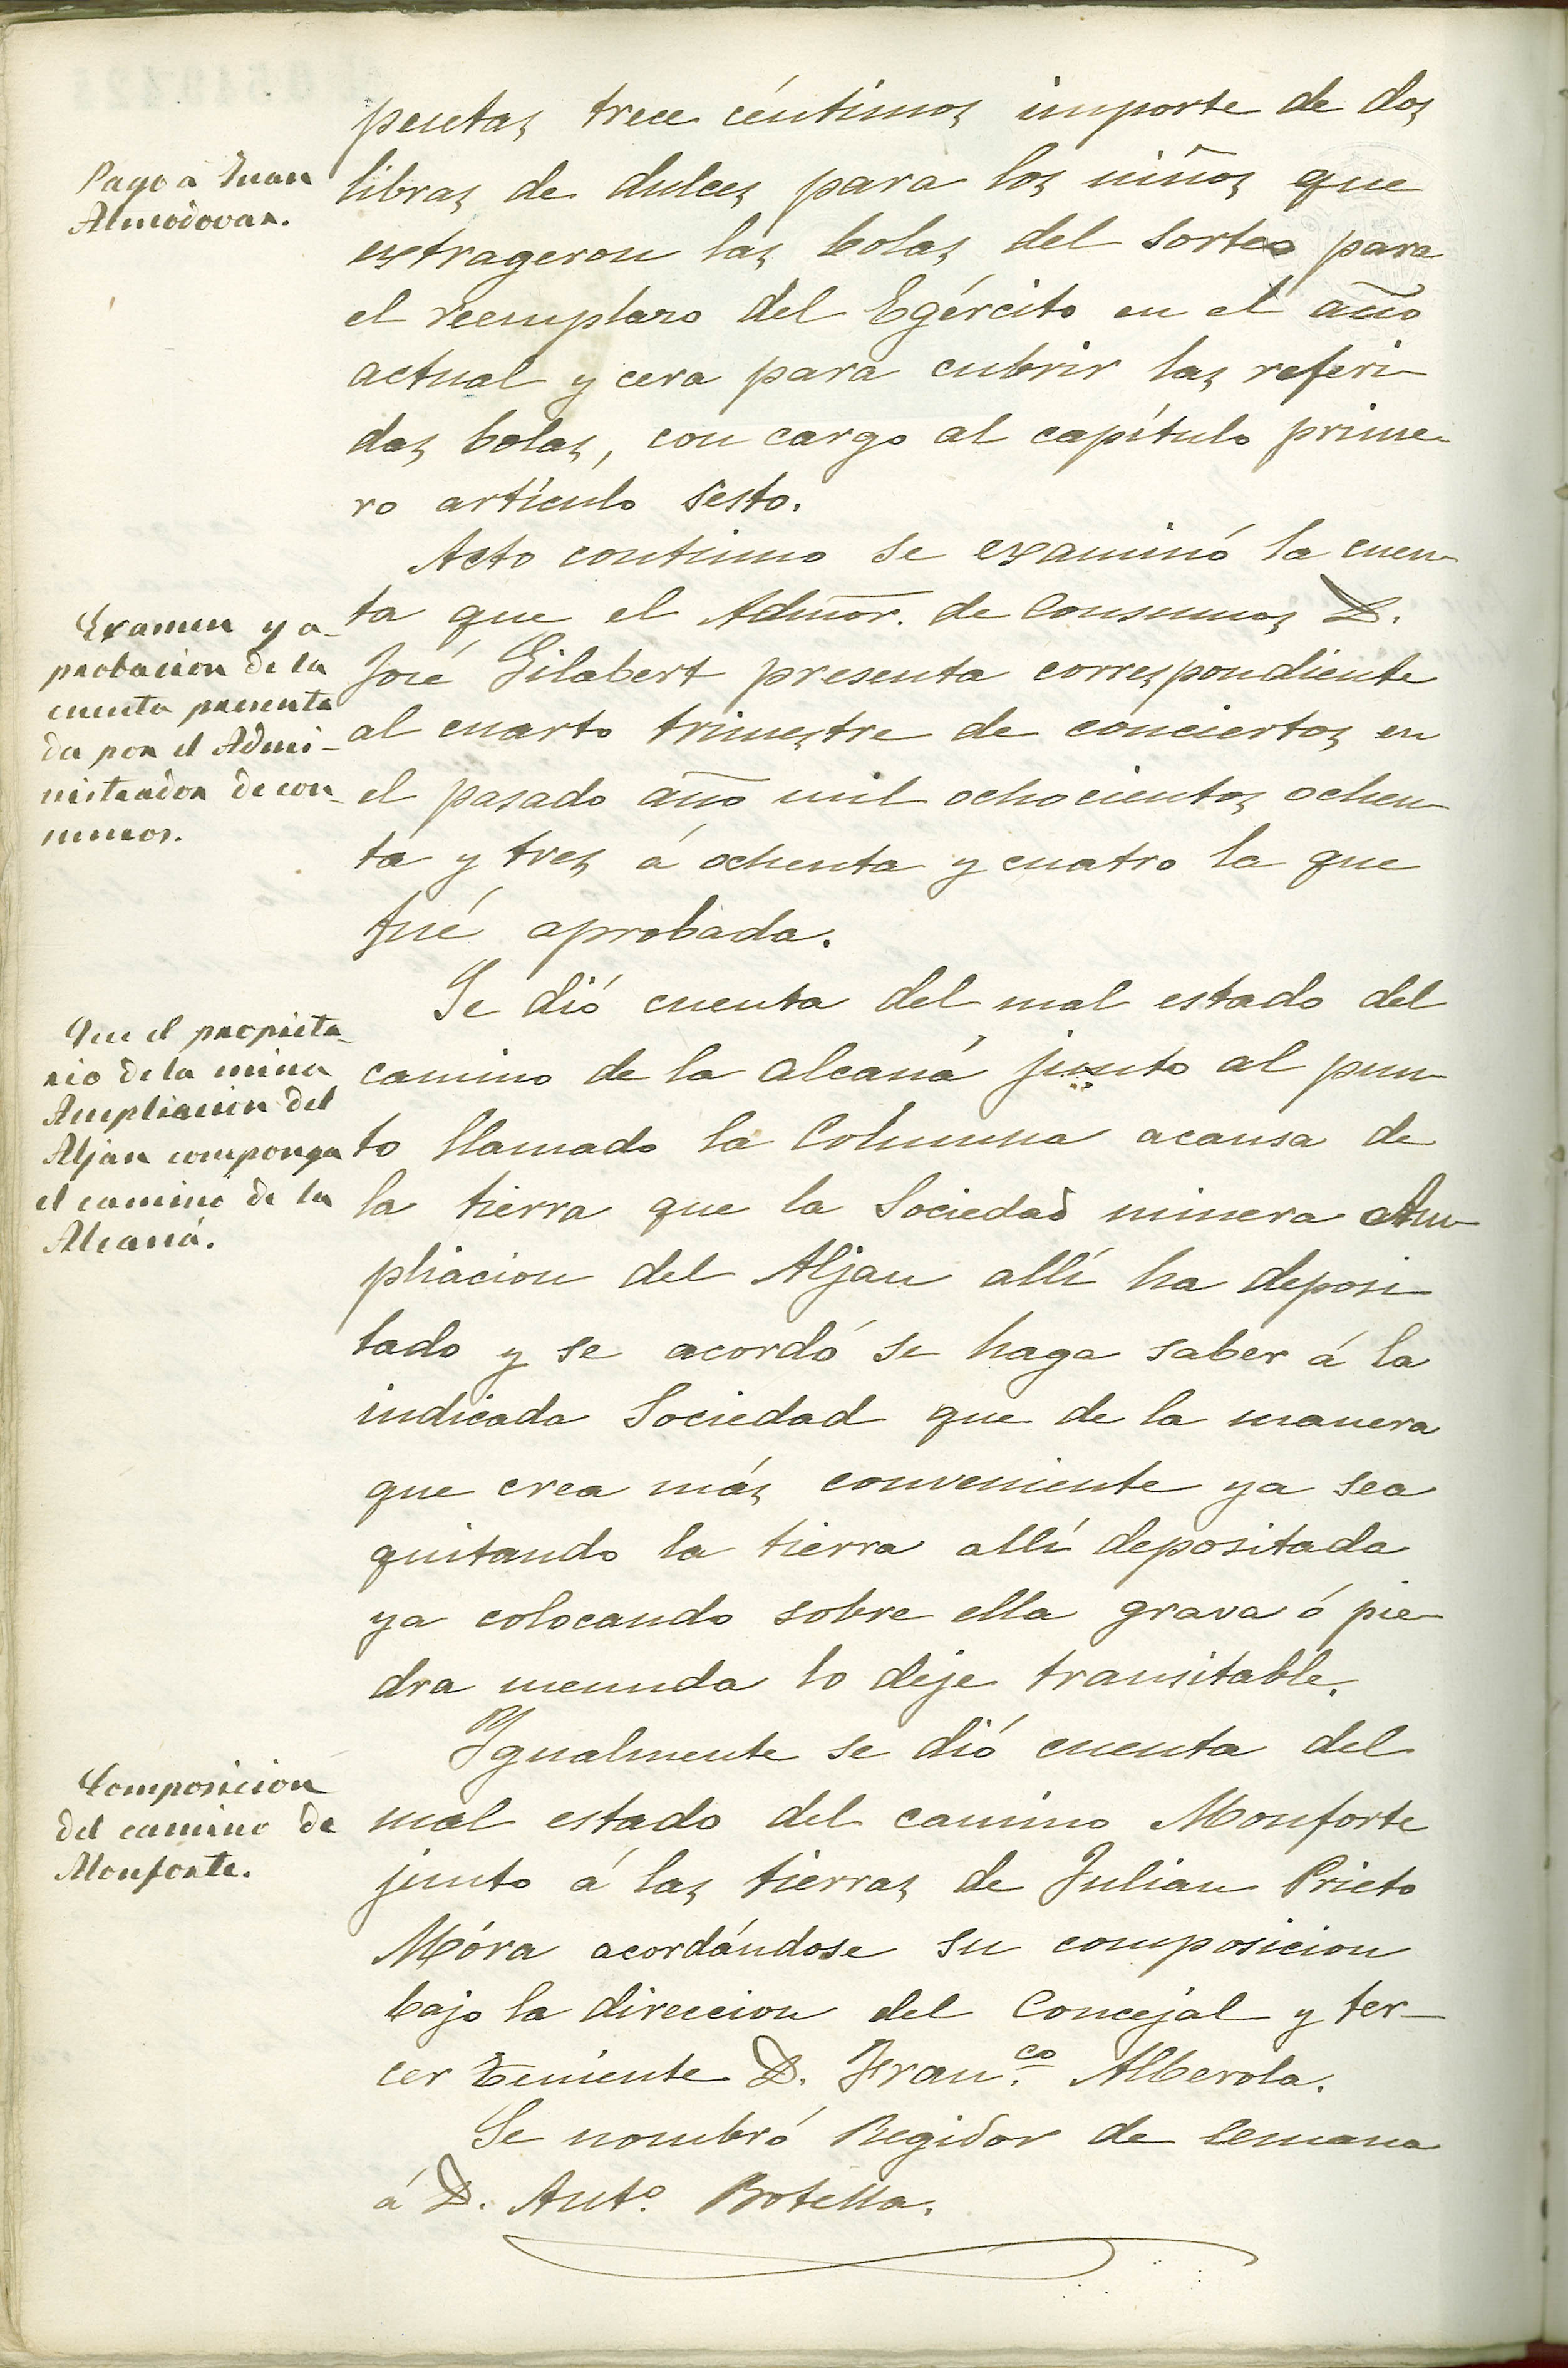 pesetas trece céntimos importe de dos
Pago a Juan
Almodovar.
libras de dulces para los niños que
extrageron las bolas del sorteo para
el reemplazo del Egército en el año
actual y cera para cubrir las referi-
das bolas, con cargo al capítulo prime-
ro artículo sesto.
Acto continuo se examinó la cuen-
Examen y a-
probacion de la
cuenta presenta
da por el Admi-
nistrador de con-
sumos.
ta que el Admor. de Consumos D.
José Gilabert presenta correspondiente
al cuarto trimestre de conciertos en
el pasado año mil ochocientos ochen-
ta y tres á ochenta y cuatro la que
fué aprobada.
Se dió cuenta del mal estado del
Que el propieta-
rio de la mina
Ampliacion del
Aljan componga
el camino de la
Alcaná.
camino de la Alcaná junto al pun-
to llamado la Columna acausa de
la tierra que la Sociedad minera Am-
pliacion del Aljau allí ha deposi-
tado y se acordó se haga saber á la
indicada Sociedad que de la manera
que crea más conveniente ya sea
quitando la tierra allí depositada
ya colocando sobre ella grava ó pie-
dra menuda lo deje transitable.
Ygualmente se dió cuenta del
Composicion
del camino de
Monforte.
mal estado del camino Monforte
junto á las tierras de Julian Prieto
Móra acordándose su composicion
bajo la direccion del Concejal y ter-
cer Teniente D. Fran.co Alberola.
Se nombró Regidor de semana
á D. Ant.o Botella.